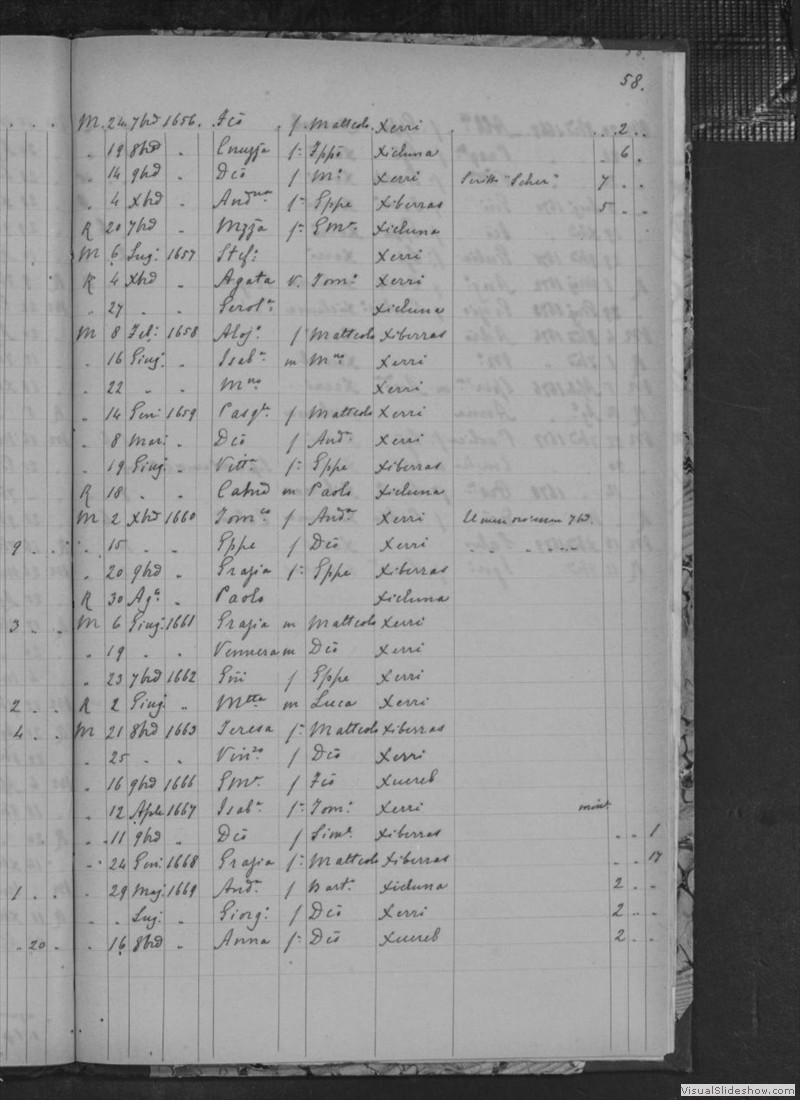 58.
M. 24 7bre 1656. Fcō f. Matteolo Xerri 2
" 19 8bre " Cnuzza f: Jppō Xicluna 6
" 14 9bre " Dcō f Mo Xerri Scritto "Scher" 7
" 4 Xbre " Andna f: Gppe Xiberras 5
R 20 7bre " Mzza f: Eml. Xicluna
M 6 Lug: 1657 Stef: Xerri
R 4 Xbre " Agata v. Tom: Xerri
" 27 " Xicluna
M 8 Feb: 1658 Aloja f Matteolo Xiberras
" 16 Giug: " Isaba m Mno Xerri
" 22 " " Mno Xerri
" 14 Gen: 1659 Pasqle f Matteolo Xerri
" 8 Mar: " Dcō f Anda Xerri
" 19 Giug: " Vitta f: Gppe Xiberras
R 18 " " m Paolo Xicluna
M 2 Xbre 1660 Tomso f Anda Xerri
9 " 15 " " Gppe f Dcō Xerri " " "
" 20 9bre " Grazia f: Gppe Xiberras
R 30 Ago " Paolo Xicluna
3 M 6 Giug: 1661 Grazia m Matteolo Xerri
" 19 " Vennera m Dcō Xerri
" 23 7bre 1662 Gio f Gppe Xerri
2 R 2 Giug: " Mtta m Luca Xerri
4 M 21 8bre 1663 Teresa f: Matteolo Xiberras
" 25 " " Vinzo f Dcō Xerri
" 16 9bre 1666 Eml. f Fcō Xuereb
" 12 Aple 1667 Isaba f: Tom: Xerri
" 11 9bre " Dcō f Simo Xiberras 1
" 24 Gen: 1668 Grazia f: Matteolo Xiberras 17
1 " 29 Mag: 1669 Anda f Barto Xicluna 2
" " Lug: " Giorgo f Dcō Xerri 2
20 " 16 8bre " Anna f: Dcō Xuereb 2
VisualSlideshow.com